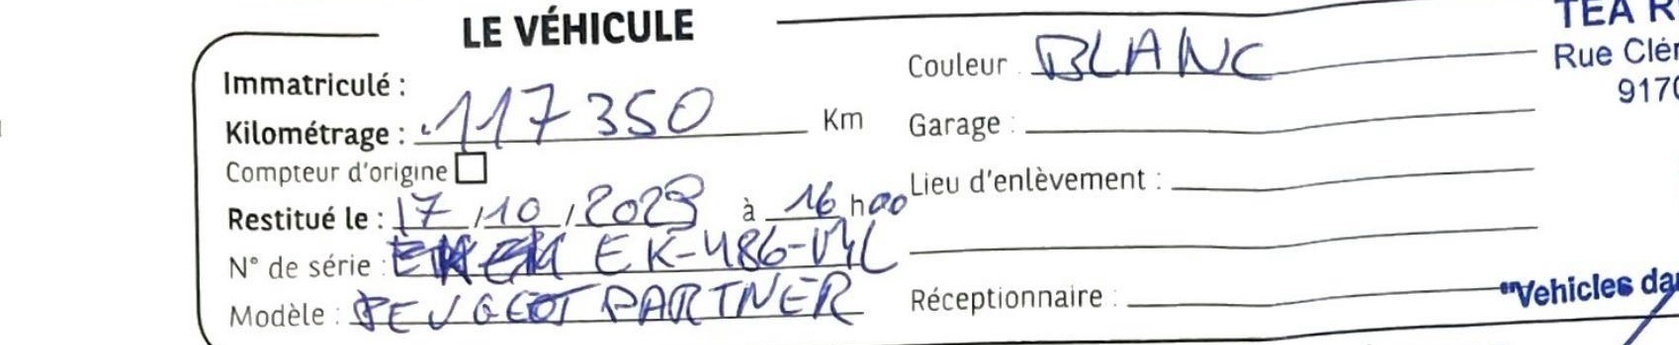 LE VÉHICULE
Immatriculé :
Kilométrage : 117350 Km
Compteur d'origine
Restitué le : 17/10/2023 à 16 h00
N° de série : EK-486-
Modèle : PEUGEOT PARTNER
Couleur BLANC
Garage :
Lieu d'enlèvement :
Réceptionnaire :
TEA R
Rue Clér
9170
"Vehicles da